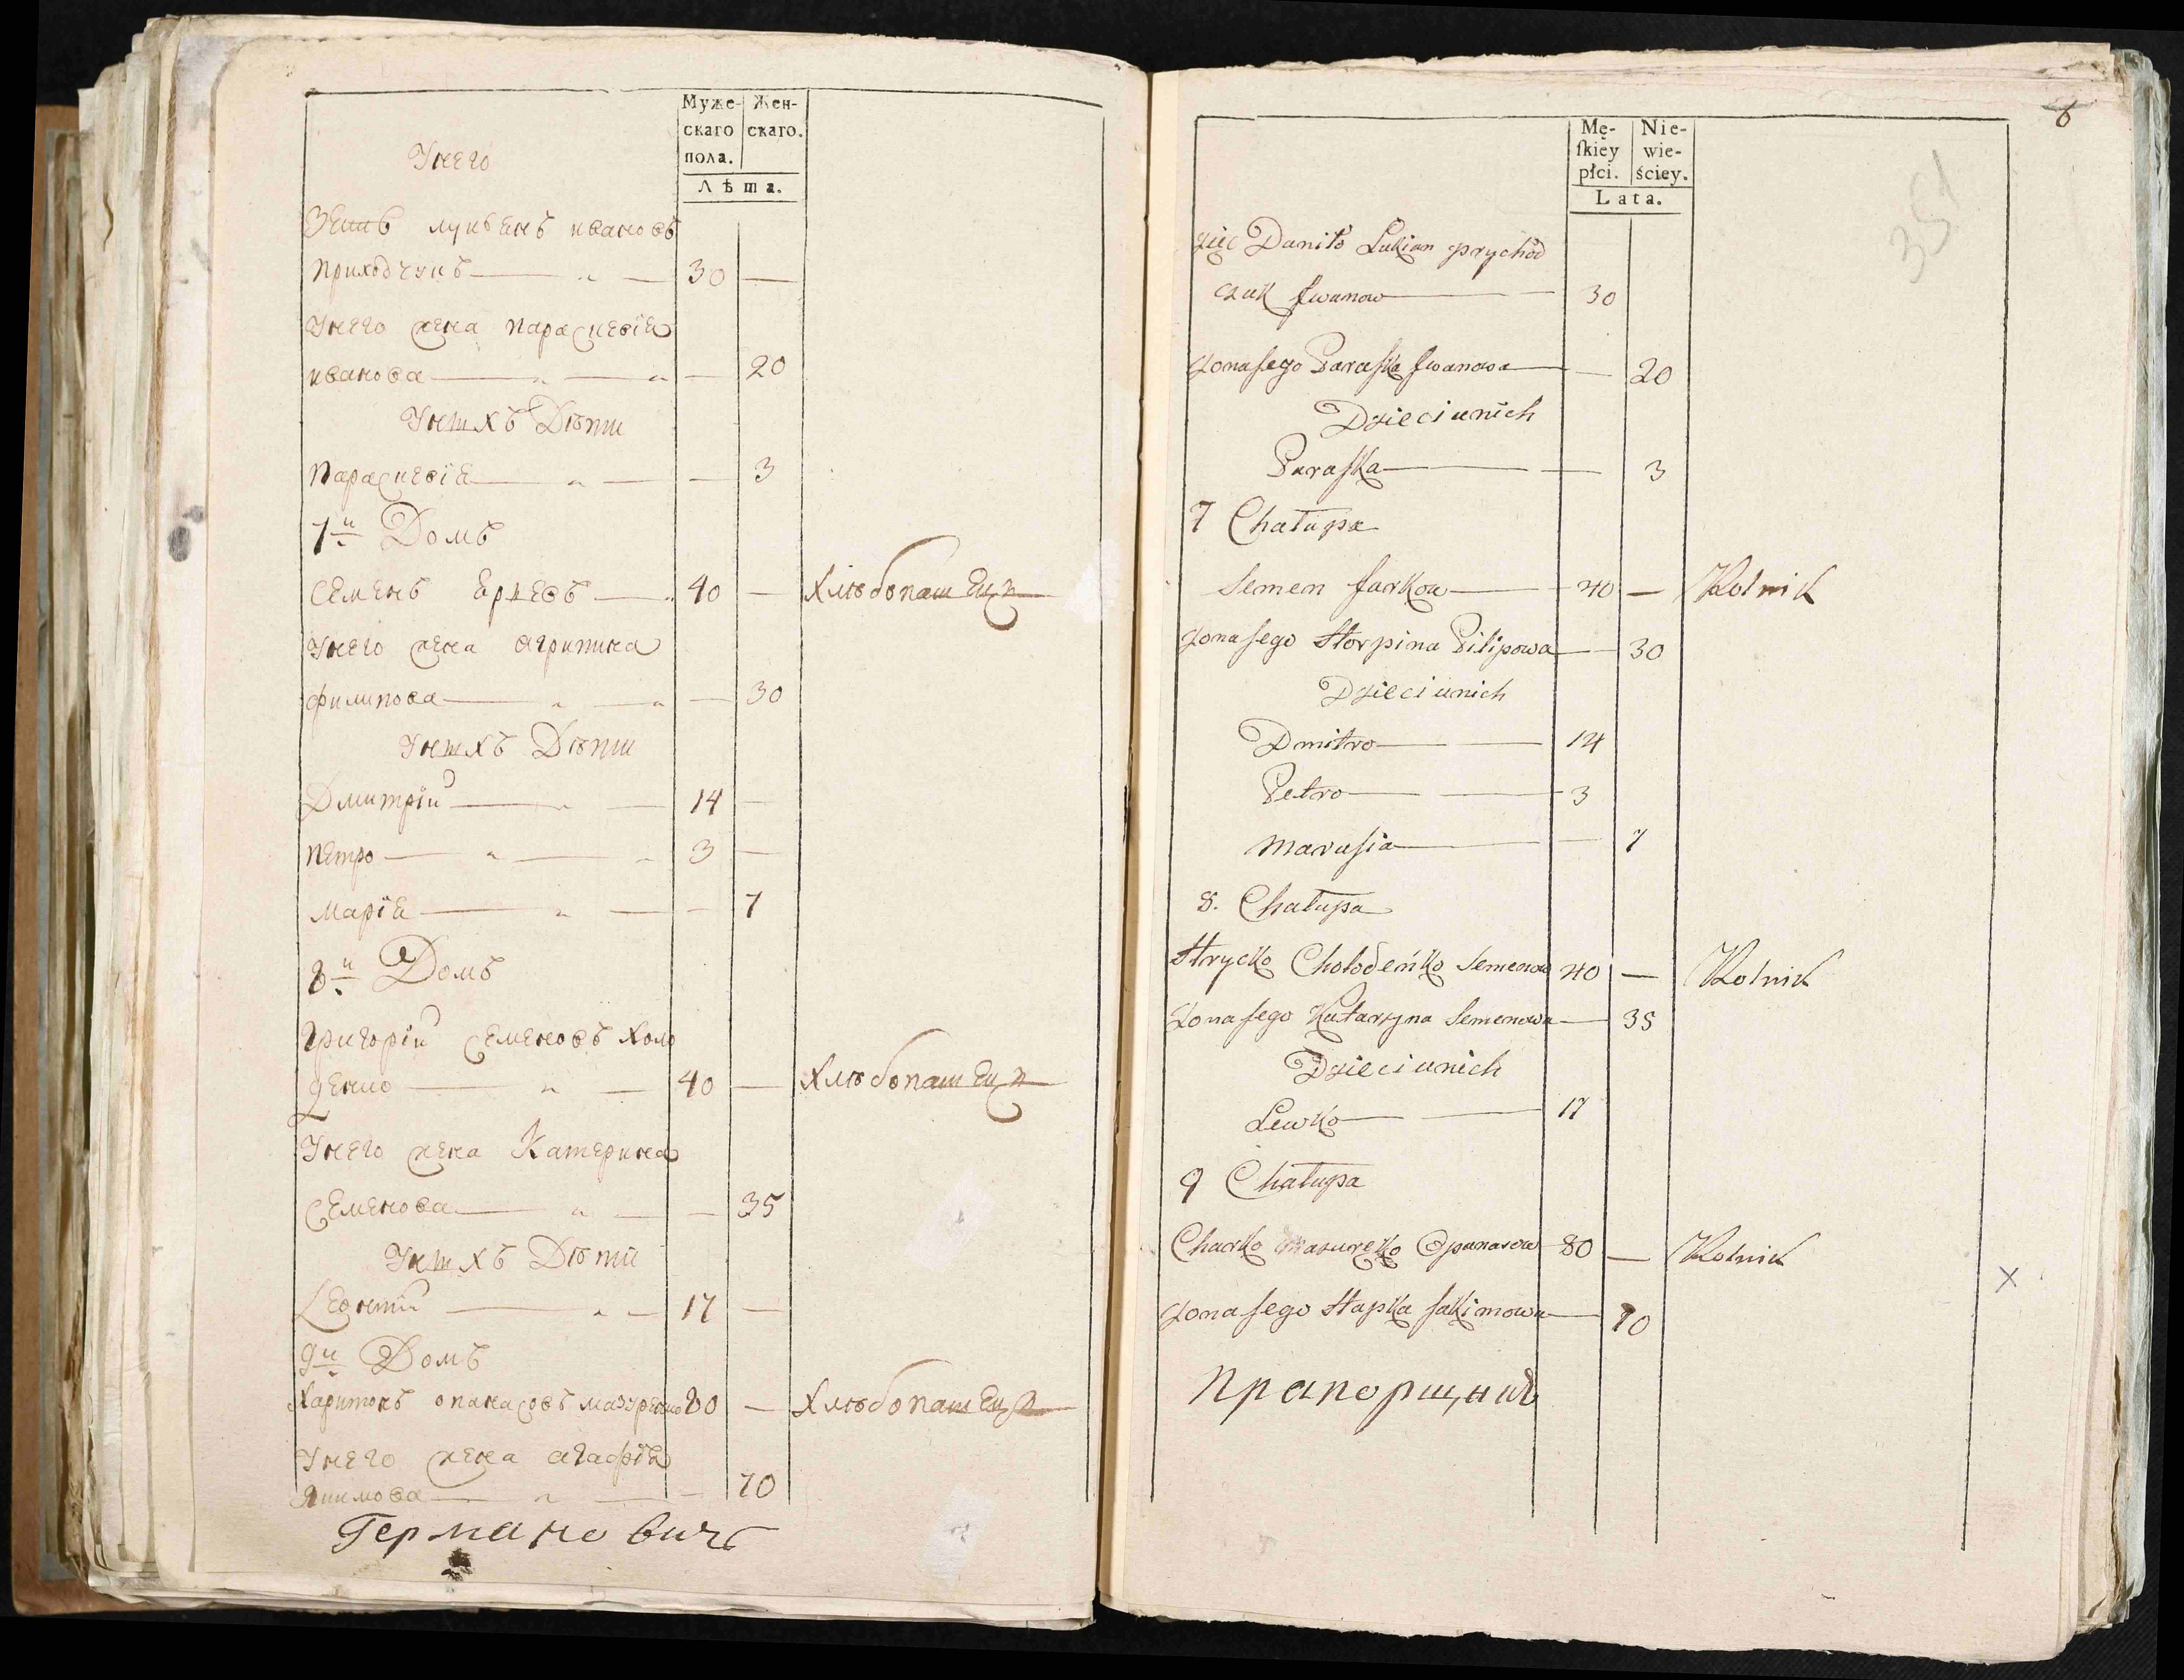 Муже-
скаго
пола.
Жен-
скаго.
Лѣта.
Унего
Зять лукъянъ ивановъ
приходчукъ 30 —
Унего жена параскевіа
иванова — 20
Унихъ Дѣти
Параскевіа — 3
7й Домъ
Семенъ Ярковъ 40 — Хлѣбопашецъ
Унего жена агрипина
филипова — 30
Унихъ Дѣти
Дмитрій 14 —
Петро 3 —
Маріа — 7
8й Домъ
Григорій Семеновъ Холо
денко 40 — Хлѣбопашецъ
Унего жена Катерина
Семенова — 35
Унихъ Дѣти
Леонтій 17 —
9й Домъ
Харитонъ опанасовъ мазуренко 80 — Хлѣбопашецъ
Унего жена агафіа
Якимова — 70
Германовичъ
6
351
Mę-
ſkiey
płci.
Nie-
wie-
ściey.
Lata.
zięć Daniło Lukian prychod
czuk Jwanow 30
Zona Jego Paraſka Jwanowa — 20
Dzieci unich
Paraſka — 3
7 Chałupa
Semen Jarkow 40 — Rolnik
Zona Jego Horpina Pilipowa — 30
Dzieci unich
Dmitro 14
Petro 3
Maruſia — 7
8. Chałupa
Hrycko Chołodeńko Semenow 40 — Rolnik
Zona Jego Katarzyna Semenowa — 35
Dzieci unich
Lewko 17
9 Chałupa
Charko Mazureńko Opanasow 80 — Rolnik
Zona Jego Hapka Jakimowa — 70
Прапорщикъ